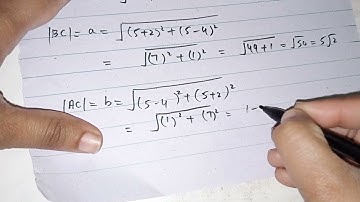 |BC| = a = √(5+2)² + (5-4)²
= √(7)² + (1)² = √49+1 = √50 = 5√2
|AC| = b = √(5-4)² + (5+2)²
= √(1)² + (7)² =